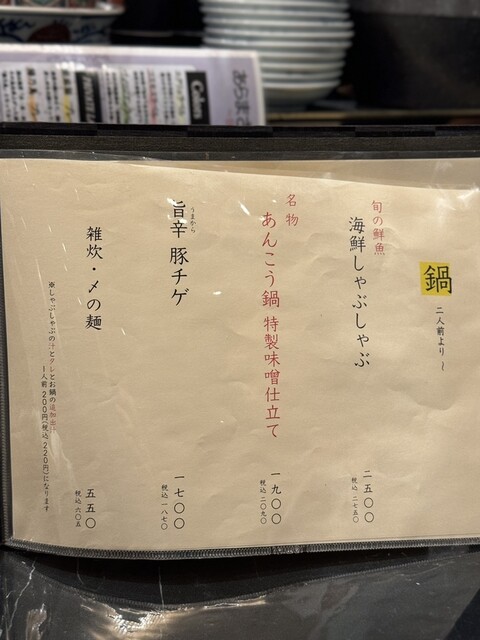 鍋 二人前より～
旬の鮮魚
海鮮しゃぶしゃぶ
二五〇〇
税込 二七五〇
名物
あんこう鍋 特製味噌仕立て
一九〇〇
税込 二〇九〇
うまから
旨辛 豚チゲ
一七〇〇
税込 一八七〇
雑炊・〆の麺
五五〇
税込 六〇五
※しゃぶしゃぶの汁とタレとお鍋の追加出し
1人前 200円(税込 220円)になります